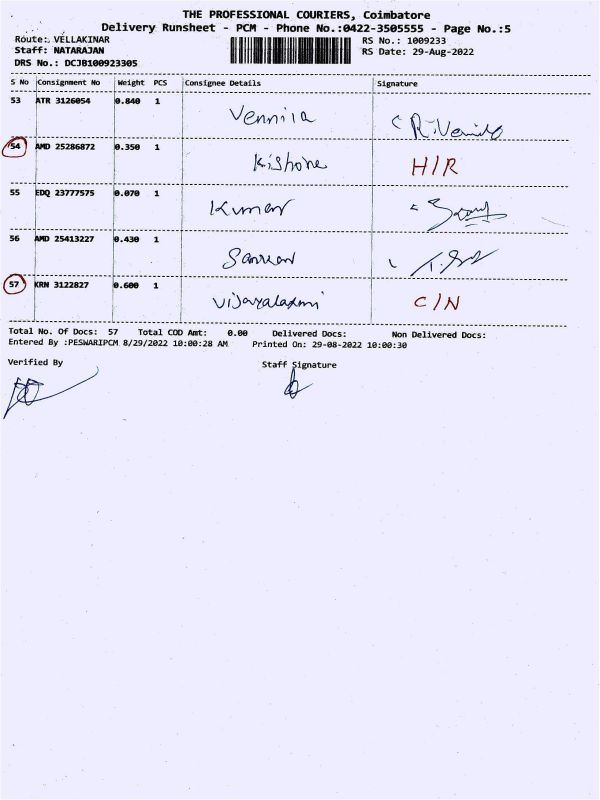 THE PROFESSIONAL COURIERS, Coimbatore
Delivery Runsheet - PCM - Phone No.:0422-3505555 - Page No.:5
Route: VELLAKINAR
RS No.: 1009233
Staff: NATARAJAN
RS Date: 29-Aug-2022
DRS No.: DCJB100923305
S No Consignment No Weight PCS Consignee Details Signature
53 ATR 3126054 0.840 1 Vennila
54 AMD 25286872 0.350 1 Kishore H/R
55 EDQ 23777575 0.070 1 Kumar
56 AMD 25413227 0.430 1
57 KRN 3122827 0.600 1 Vijayalaxmi C/N
Total No. Of Docs: 57 Total COD Amt: 0.00 Delivered Docs: Non Delivered Docs:
Entered By :PESWARIPCM 8/29/2022 10:00:28 AM Printed On: 29-08-2022 10:00:30
Verified By Staff Signature